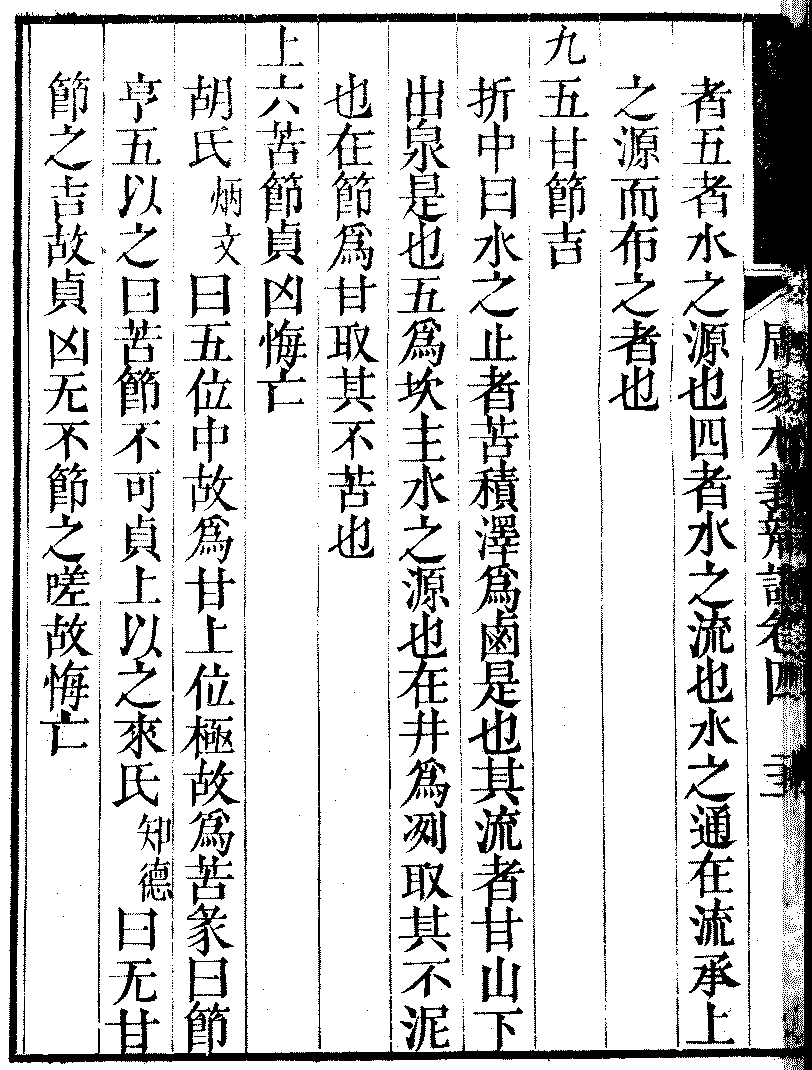 周易本義辨證卷四
者五者水之源也四者水之流也水之通在流承上
之源而布之者也
九五甘節吉
折中曰水之止者苦積澤爲鹵是也其流者甘山下
出泉是也五爲坎主水之源也在井爲冽取其不泥
也在節爲甘取其不苦也
上六苦節貞凶悔亡
胡氏炳文曰五位中故爲甘上位極故爲苦彖曰節
亨五以之曰苦節不可貞上以之來氏知德曰无甘
節之吉故貞凶无不節之嗟故悔亡